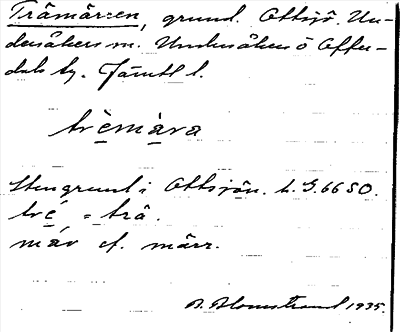 Trämärren, grund. Ottsjö. Un-
densåkers sn. Undersåkers o Offer-
dals tg. Jämtl l.
trèmæra
Stengrund i Ottsjön. t. G.6650.
tré = trä.
mär cf. märr.
B. Blomstrand 1935.